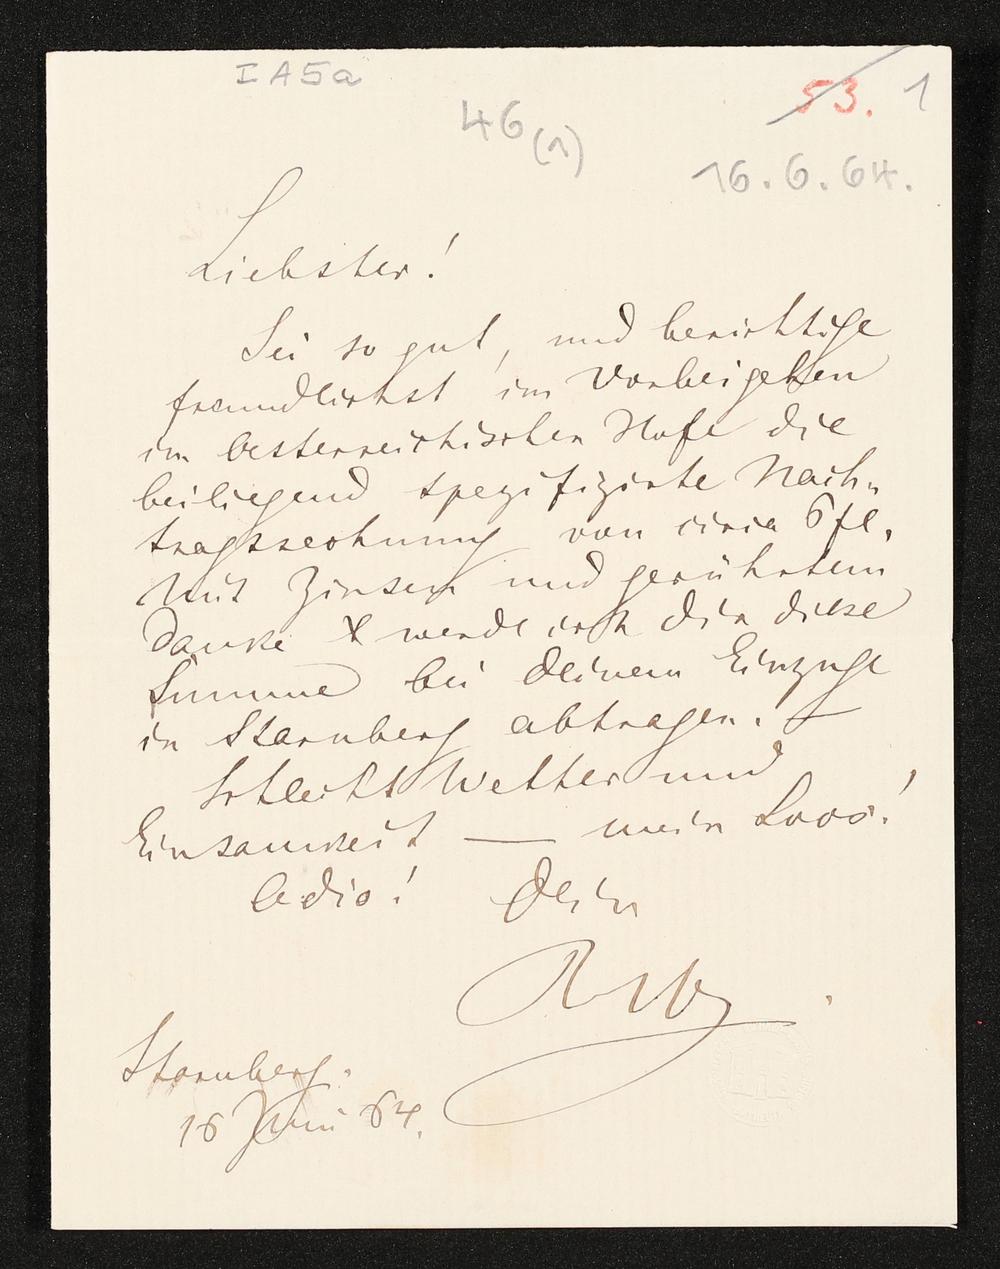 I A 5a
53. 1
46 (1)
16.6.64.
Liebster!
Sei so gut, und berichtige
freundlichst im Vorbeigehen
im oesterreichischen Hofe die
beiliegend spezifizirte Nach-
tragsrechnung von circa 6 fl.
Mit Zinsen und gerührtem
Danke werde ich Dir diese
Summe bei Deinem Einzuge
in Starnberg abtragen. —
Schlecht Wetter und
Einsamkeit — mein Loos!
Adio! Dein
RW
Starnberg.
16 Juni 64.